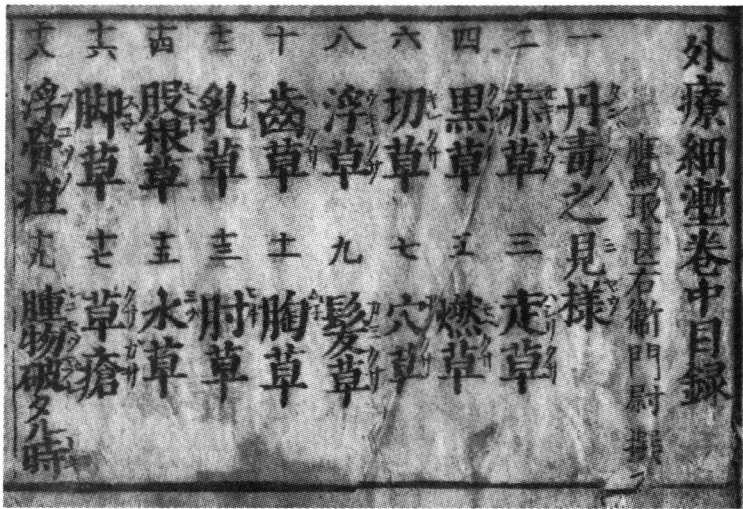 外療細塹巻中目録
鷹取甚右衛門尉 撰
一 丹毒之見様
二 赤草 三 走草
四 黒草 五 燃草
六 切草 七 穴草
八 浮草 九 髪草
十 齒草 十一 胸草
十二 乳草 十三 肘草
十四 股根草 十五 水草
十六 脚草 十七 草瘡
十八 浮骨疽 十九 腫物破タル時